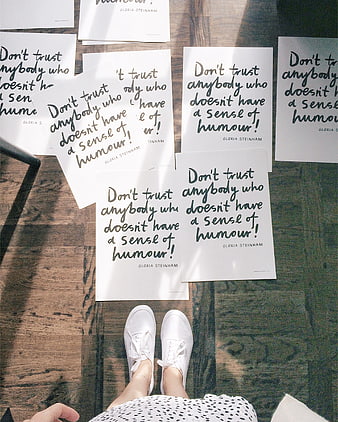 humour!
GLORIA STEINHAM
Don't trust
anybody who
doesn't h
a sen
hum
GLORIA S
't trust
have
of
r!
Don't trust
anybody who
doesn't have
a sense of
humour!
GLORIA STEINHAM
Don't trust
anybody who
doesn't have
a sense of
humour!
GLORIA STEINHAM
Don't tr
anybody
doesn't h
a sense
humo
GLORIA
Don't trust
anybody wh
doesn't have
a sense of
humour!
GLORIA STEINHAM
Don't trust
anybody who
doesn't have
a sense of
humour!
GLORIA STEINHAM